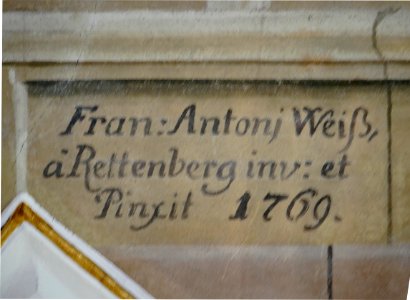 Fran: Antonj Weiß,
à Rettenberg inv: et
Pinxit 1769.